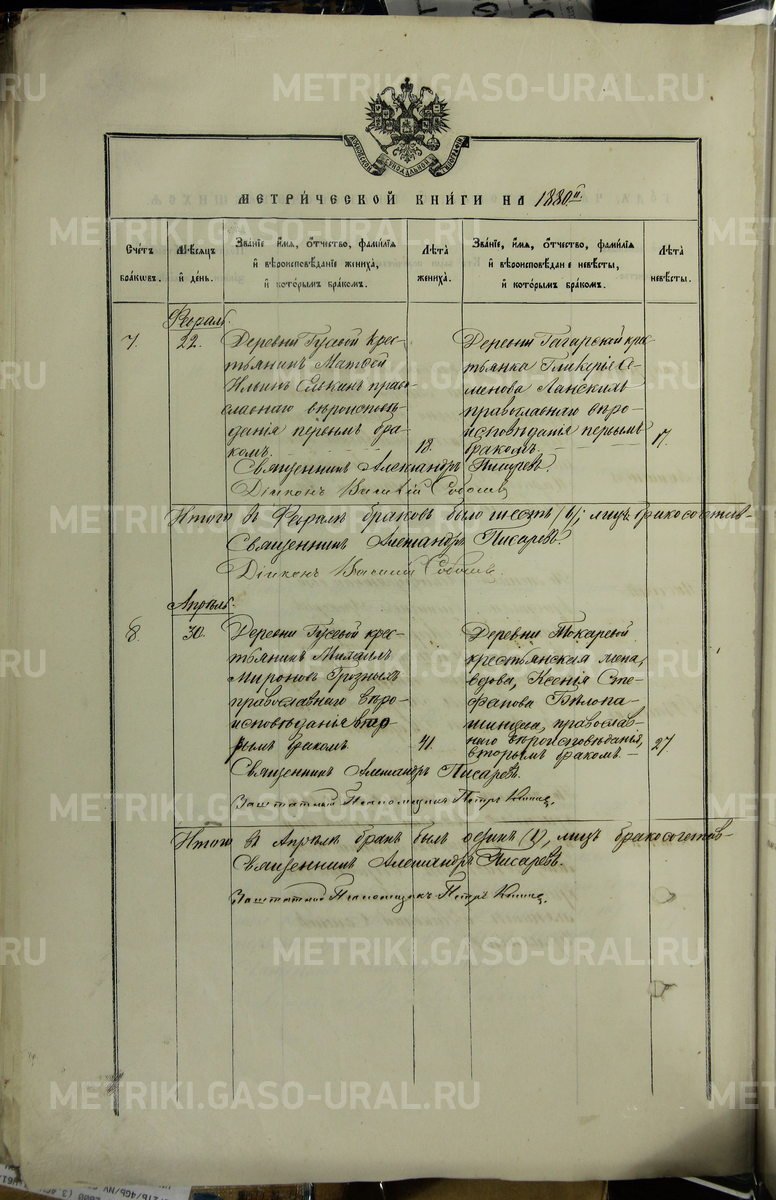 METRIKI.GASO-URAL.RU
МОСКОВСКОЙ СѴНОДАЛЬНОЙ ТИПОГРАФІИ
МЕТРИ́ЧЕСКОЙ КНИ́ГИ НА 1880й.
Сче́тъ бра́ковъ.
Мѣ́сяцъ и̂ де́нь.
Зва́нїе и҆́мя, ѻ҆́тчество, фами́лїя и҆ вѣроисповѣ́данїе жениха̀, и҆ кото́рымъ бра́комъ.
Лѣ́та жениха̀.
Зва́нїе, и҆́мя, ѻ҆́тчество, фами́лїя и҆ вѣроисповѣ́данїе невѣ́сты, и҆ кото́рымъ бра́комъ.
Лѣ́та невѣ́сты.
Февраль.
7.
22.
Деревни Гусевой крес-
тьянинъ Матвей
Ильинъ
право-
славнаго вѣроисповѣ-
данія первымъ бра-
комъ.
18.
Деревни Гагарской крес-
тьянка Гликерія Се-
менова Ланскихъ
православнаго вѣро-
исповѣданія первымъ
бракомъ.
17.
Священникъ Александръ Писаревъ.
Діаконъ Василій
Итого въ Февралѣ браковъ было шесть (6), лицъ бракосочетав-
Священникъ Александръ Писаревъ.
Діаконъ Василій
Апрѣль.
8.
30.
Деревни Гусевой крес-
тьянинъ Михаилъ
Мироновъ Грозныхъ
православнаго вѣро-
исповѣданія вто-
рымъ бракомъ
41.
Деревни Токаревой
крестьянская жена,
вдова, Ксенія Сте-
фанова Бѣлопа-
шинцева, православ-
наго вѣроисповѣданія,
вторымъ бракомъ. -
27
Священникъ Александръ Писаревъ.
Заштатный Псаломщикъ Петръ
Итого въ Апрѣлѣ бракъ былъ одинъ (1), лицъ бракосочетав-
Священникъ Александръ Писаревъ.
Заштатный Псаломщикъ Петръ